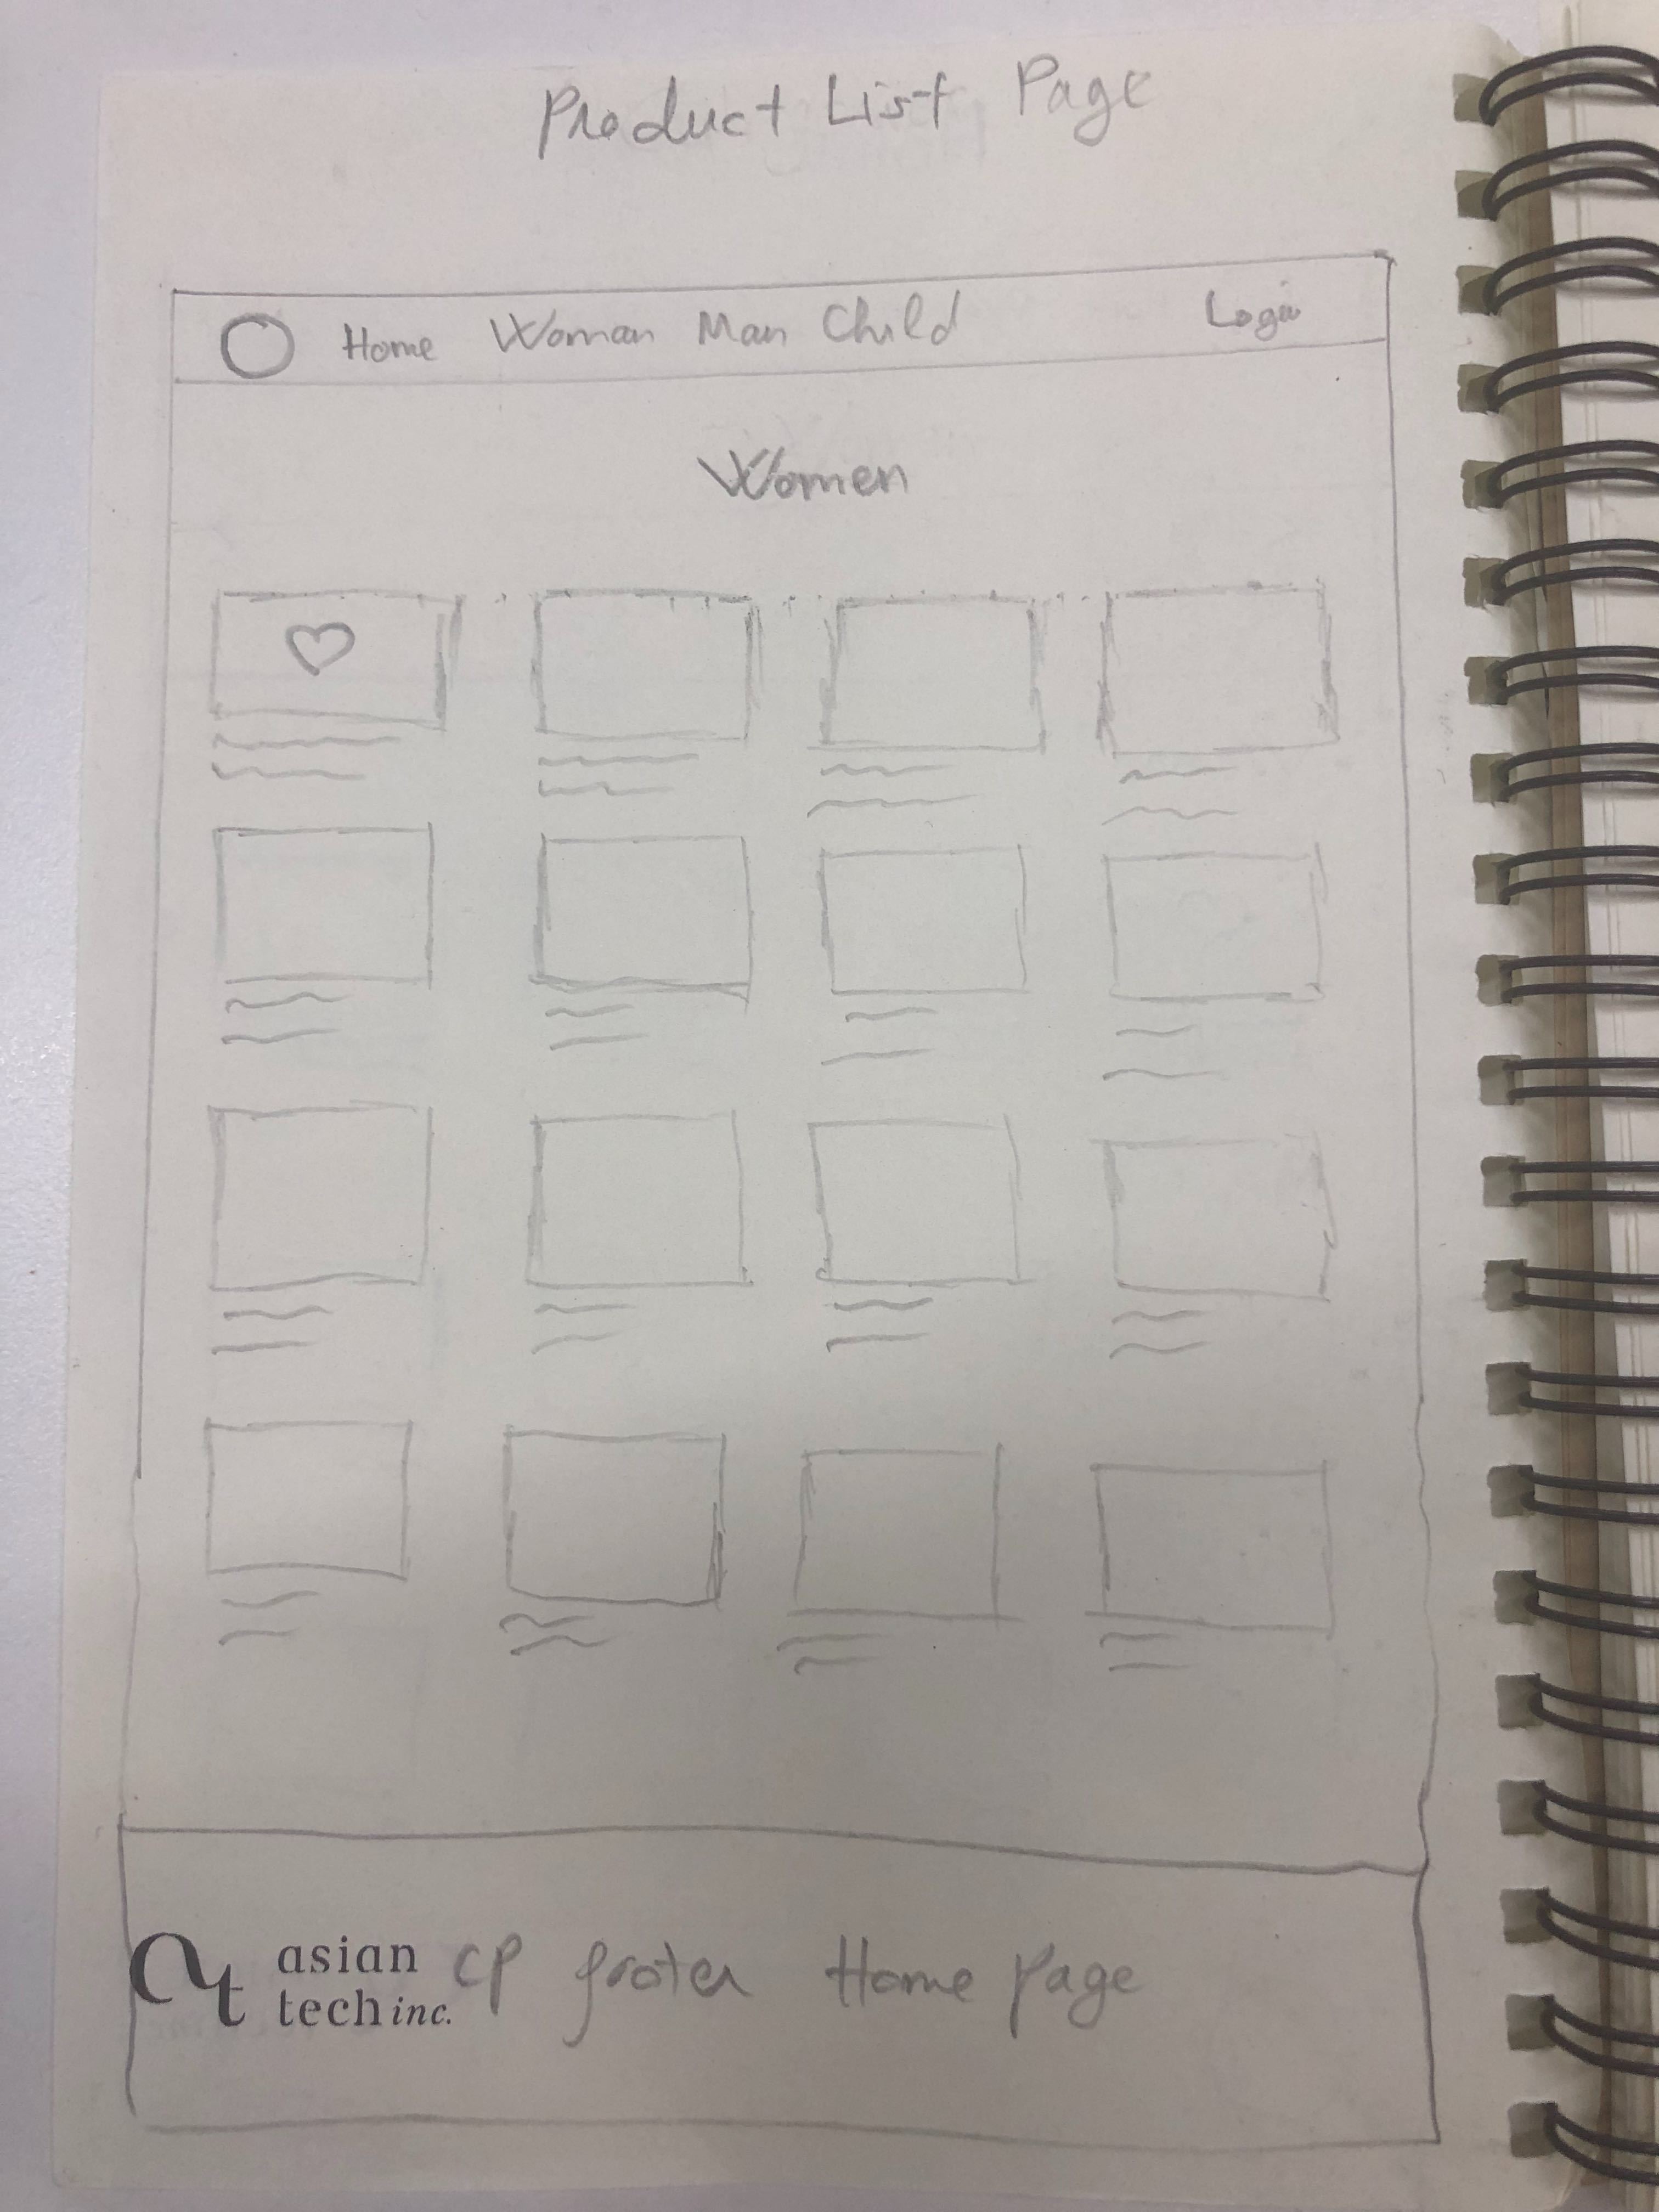 Product List Page
Home Woman Man Child Login
Women
asian
tech inc.
CP footer Home page